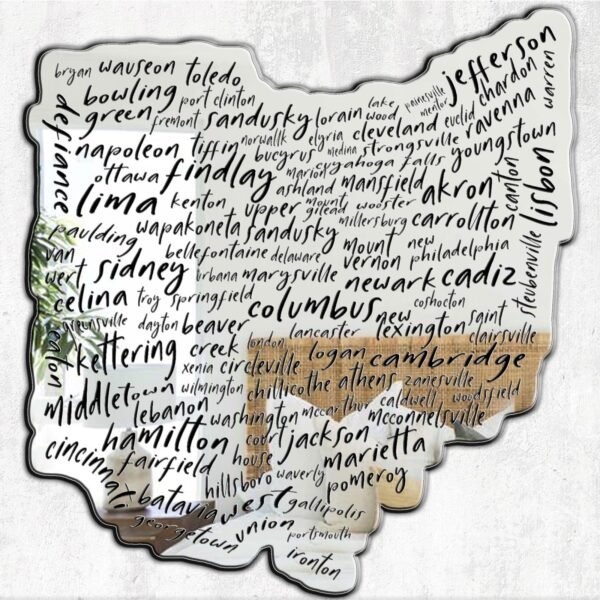 bryan wauseon toledo
jefferson
bowling port clinton
green fremont sandusky lorain lake wood painesville mentor euclid chardon warren
defiance
napoleon tiffin norwallk elyria cleveland ravenna
bucyrus medina strongsville youngstown
ottawa findlay marion cuyahoga falls
lima kenton ashland mansfield akron canton lisbon
upper mount gilead wooster
wapakoneta sandusky millersburg carrollton
paulding bellefontaine delaware mount vernon new philadelphia steubenville
van wert sidney urbana marysville newark cadiz
celina troy springfield columbus coshocton
greensville dayton beaver creek new lexington saint clairsville
eaton kettering london lancaster logan cambridge
xenia circleville
middletown wilmington chillicothe athens zanesville
lebanon washington court house mccarthur caldwell woodsfield
mcconnelsville
hamilton jackson marietta
cincinnati fairfield hillsboro waverly pomeroy
batavia west union gallipolis
georgetown portsmouth
ironton